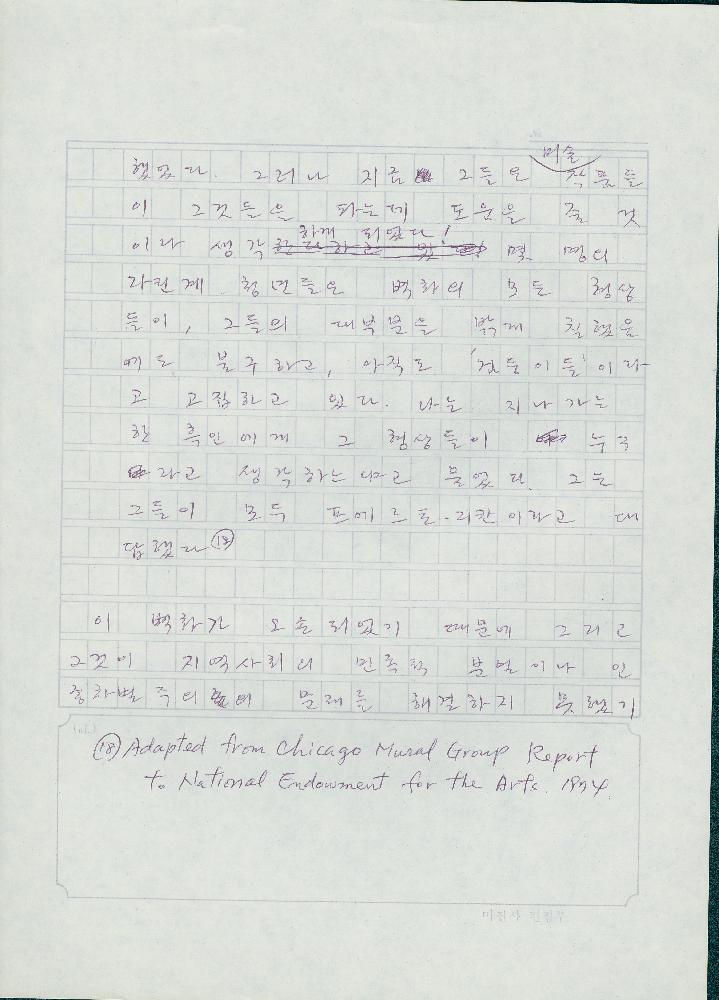 했었다. 그러나 지금 그들은 미술 작품들
이 그것들을 파는데 도움을 줄 것
이라 생각하게 되었다! 몇 명의
라틴계 청년들은 벽화의 모든 형상
들이, 그들의 대부분을 밝게 칠했음
에도 불구하고, 아직도 '검둥이들'이라
고 고집하고 있다. 나는 지나가는
한 흑인에게 그 형상들이 누구
라고 생각하느냐고 물었다. 그는
그들이 모두 푸에르토-리칸이라고 대
답했다 ⑱
이 벽화가 오손되었기 때문에 그리고
그것이 지역사회의 민족적 분열이나 인
종차별주의의 문제를 해결하지 못했기
(주)
⑱ Adapted from Chicago Mural Group Report
to National Endowment for the Arts. 1974.
미진사 편집부